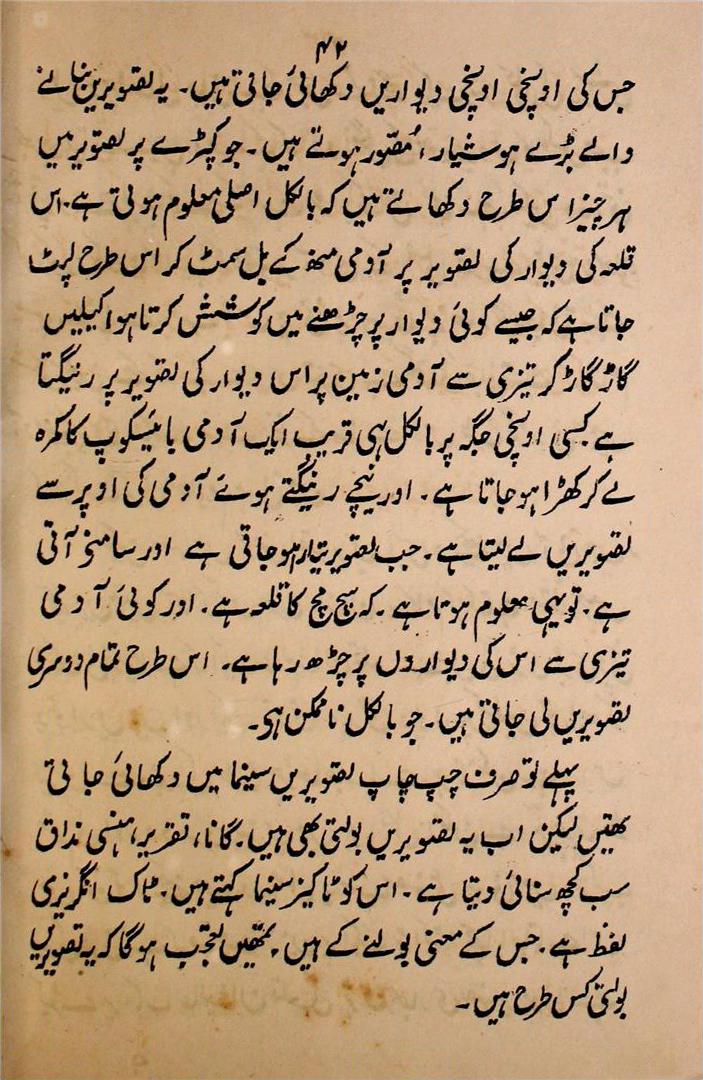 ۴۲
جس کی اونچی اونچی دیواریں دکھائی جاتی ہیں۔ یہ تصویریں بنانے
والے بڑے ہوشیار، مُصّور ہوتے ہیں۔ جو کپڑے پر تصویر میں
ہر چیز اس طرح دکھاتے ہیں کہ بالکل اصلی معلوم ہوتی ہے۔ اس
قلعہ کی دیوار کی تصویر پر آدمی منھ کے بل سمٹ کر اس طرح لپٹ
جاتا ہے کہ جیسے کوئی دیوار پر چڑھنے میں کوشش کرتا ہوا کیلیں
گاڑ گاڑ کر تیزی سے آدمی زمین پر اس دیوار کی تصویر پر رینگتا
ہے کسی اونچی جگہ پر بالکل ہی قریب ایک آدمی بائیسکوپ کا کمرہ
لے کر کھڑا ہو جاتا ہے۔ اور نیچے رینگتے ہوئے آدمی کی اوپر سے
تصویریں لے لیتا ہے۔ جب تصویر تیار ہو جاتی ہے اور سامنے آتی
ہے۔ تو یہی معلوم ہوتا ہے۔ کہ سچ مچ کا قلعہ ہے۔ اور کوئی آدمی
تیزی سے اس کی دیواروں پر چڑھ رہا ہے۔ اس طرح تمام دوسری
تصویریں لی جاتی ہیں۔ جو بالکل ناممکن ہی۔
پہلے تو صرف چپ چاپ تصویریں سینما میں دکھائی جاتی
تھیں لیکن اب یہ تصویریں بولتی بھی ہیں۔ گانا، تقریر، ہنسی مذاق
سب کچھ سنائی دیتا ہے۔ اس کو ٹاکیز سینما کہتے ہیں۔ ٹاک انگریزی
لفظ ہے۔ جس کے معنی بولنے کے ہیں۔ تمھیں تعجّب ہوگا کہ یہ تصویریں
بولتی کس طرح ہیں۔